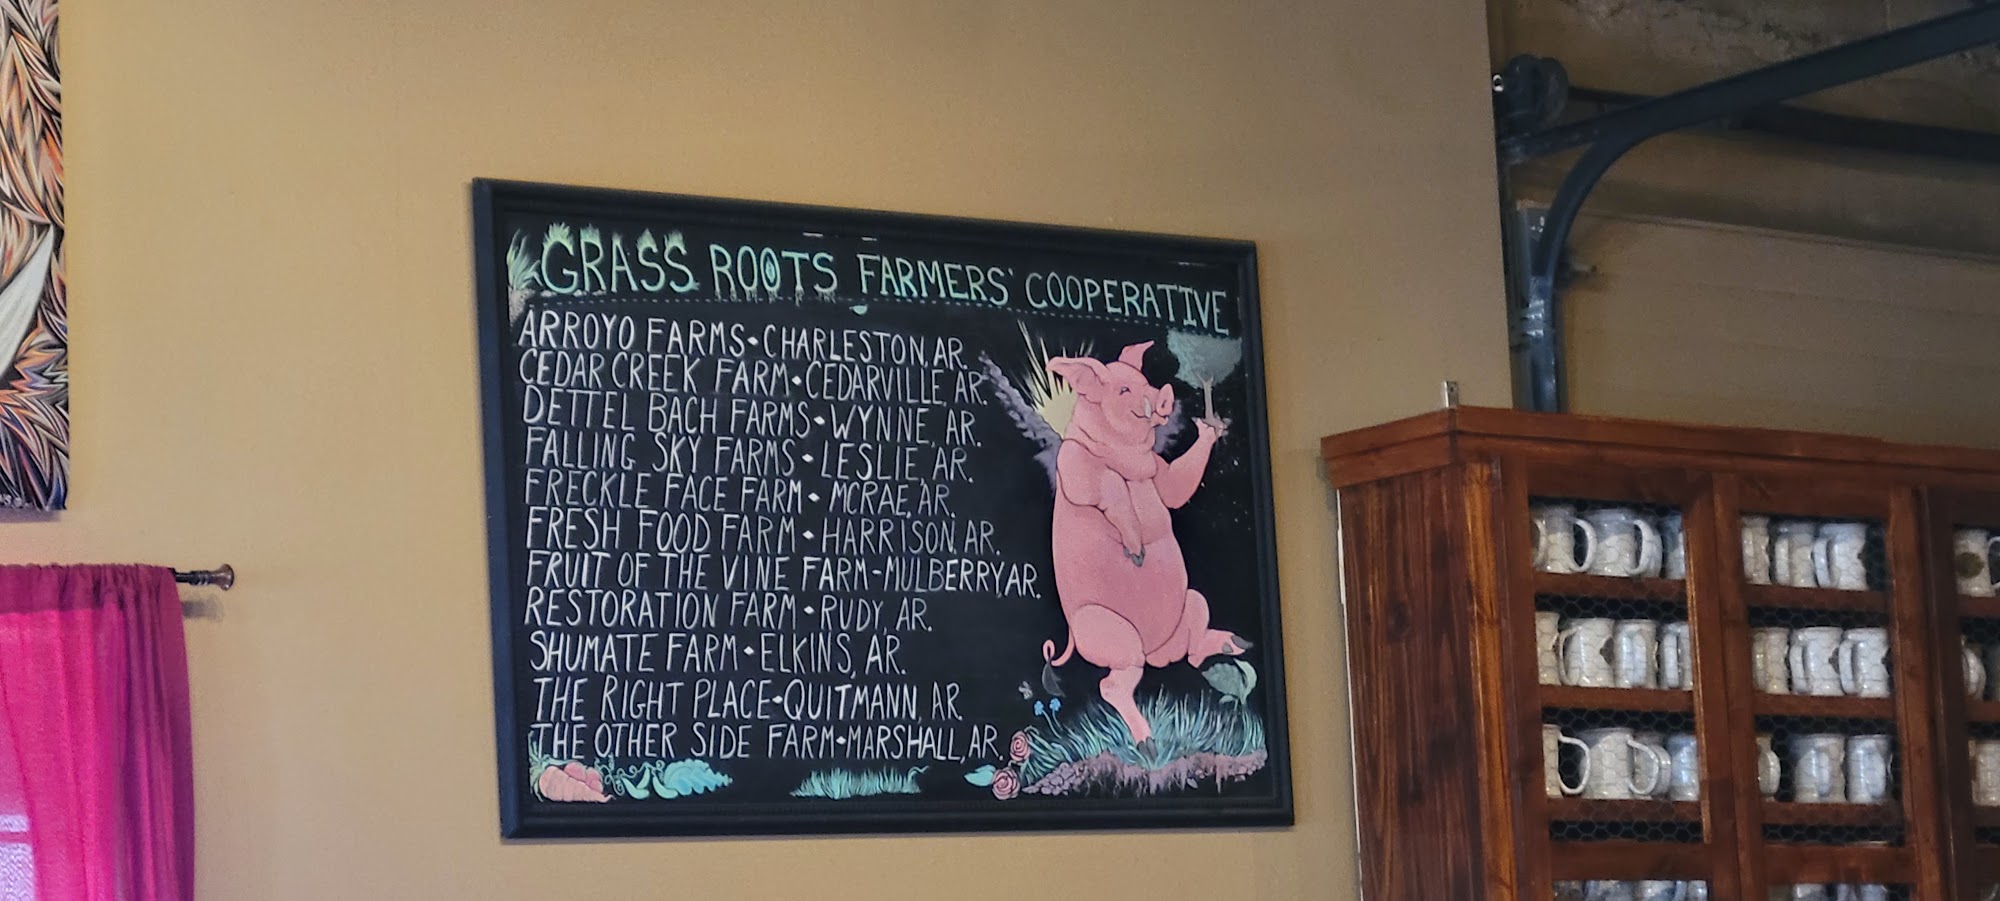 GRASS ROOTS FARMERS' COOPERATIVE
ARROYO FARMS • CHARLESTON, AR.
CEDAR CREEK FARM • CEDARVILLE, AR.
DETTEL BACH FARMS • WYNNE, AR.
FALLING SKY FARMS • LESLIE, AR.
FRECKLE FACE FARM • MCRAE, AR.
FRESH FOOD FARM • HARRISON, AR.
FRUIT OF THE VINE FARM - MULBERRY, AR.
RESTORATION FARM • RUDY, AR.
SHUMATE FARM • ELKINS, AR.
THE RIGHT PLACE • QUITMANN, AR.
THE OTHER SIDE FARM • MARSHALL, AR.